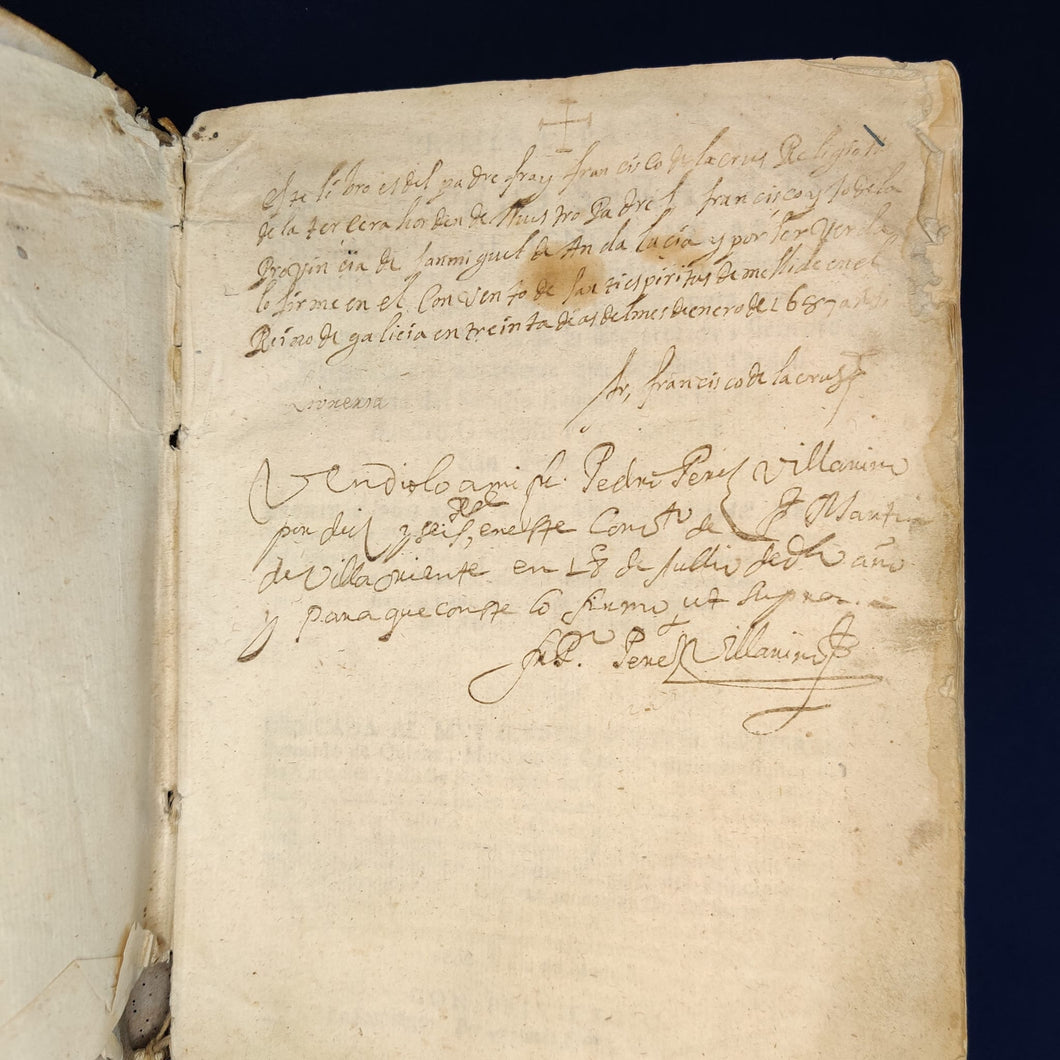 este libro es del padre fray francisco de la crus Religion
de la tercera horden de Nuestro Padre S. francisco y lo de la
Provincia de San miguel de Andalucia y por ser Verda
lo firme en el Convento de Santiespiritus de mellide en el
Reino de galicia en treinta dias del mes de enero de 1687
fr, francisco de la crus
Vendiolo a mi fr. Pedro Peres Villarino
por diez y seis Rs, en este Conto de S. Martin
de Villaoriente en 18 de Jullio de dho año
y para que conste lo firmo ut supra.
fr Po. Peres Villarino